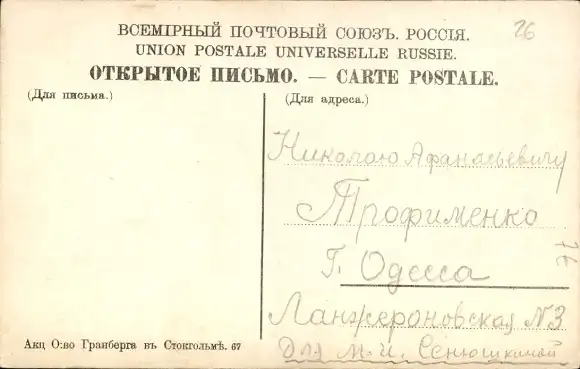 ВСЕМІРНЫЙ ПОЧТОВЫЙ СОЮЗЪ. РОССІЯ.
UNION POSTALE UNIVERSELLE RUSSIE.
ОТКРЫТОЕ ПИСЬМО. — CARTE POSTALE.
(Для письма.)
(Для адреса.)
26
Николаю Афанасьевичу
Трофименко
Г. Одесса
Ланжероновская № 3
Для М. И. Сенюшкиной
76
Акц О:во Гранберга въ Стокгольмѣ. 67